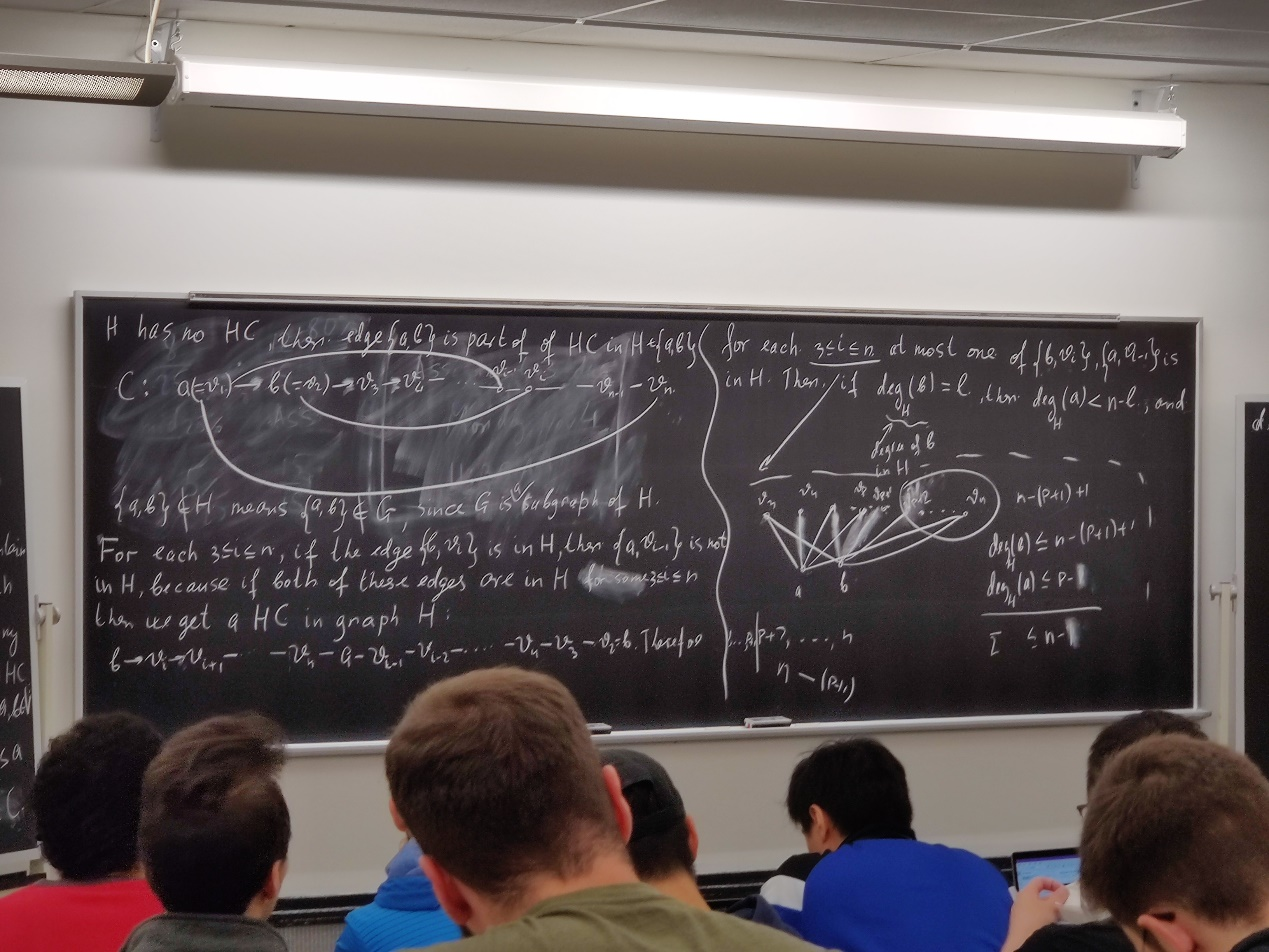 H has no HC, then edge {a,b} is part of of HC in H+{a,b}
C: a(=v₁) → b(=v₂) → v₃ → v₄ ... vᵢ₋₁ - vᵢ — — vₙ₋₁ - vₙ
{a,b} ∉ H means {a,b} ∉ G, since G is a subgraph of H.
For each 3≤i≤n, if the edge {b,vᵢ} is in H, then {a,vᵢ₋₁} is not
in H, because if both of these edges are in H for some 3≤i≤n
then we get a HC in graph H:
b → vᵢ → vᵢ₊₁ - ... - vₙ - a - vᵢ₋₁ - vᵢ₋₂ - .... - v₄ - v₃ - v₂=b. Therefor
for each 3≤i≤n at most one of {b,vᵢ},{a,vᵢ₋₁} is
in H. Then, if deg_H(b) = l, then deg_H(a) < n-l, and
degree of b
in H
v₃ v₄ vₙ
n-(P+1)+1
deg_H(b) ≤ n-(P+1)+1
deg_H(a) ≤ P-
a b
Σ ≤ n-
P+2, ...., n
n - (P+1)
HC